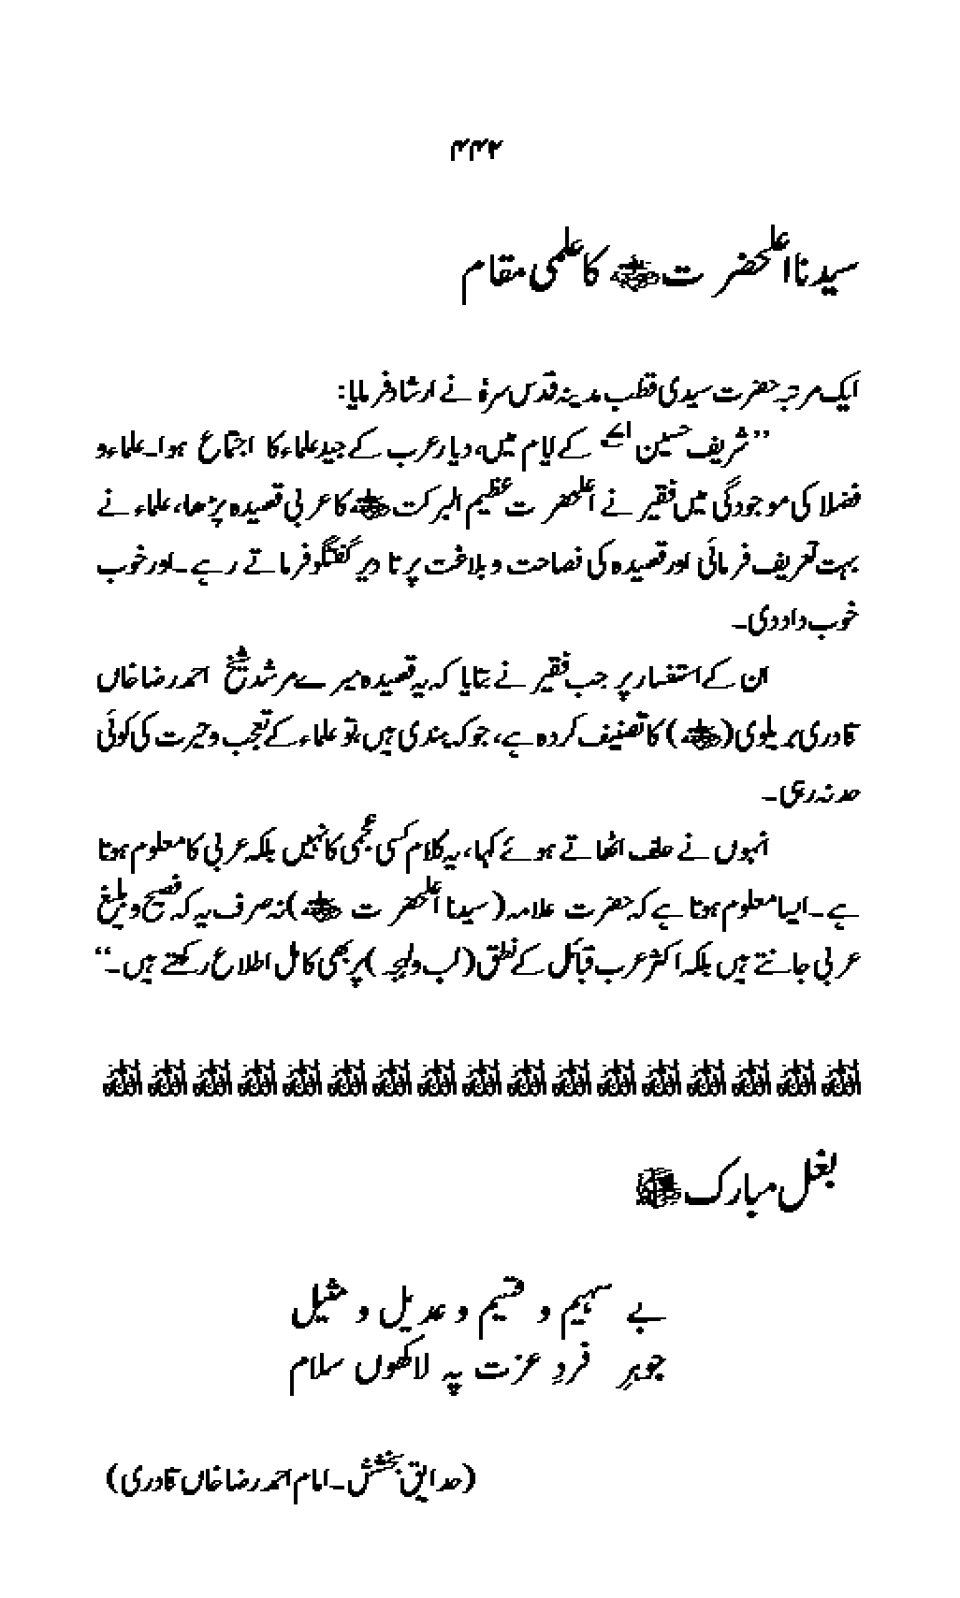 ۴۴۲
سیدنا اعلحضرت ﷛ کا علمی مقام
ایک مرتبہ حضرت سیدی قطب مدینہ قدس سرہٗ نے ارشاد فرمایا:
”شریف حسین کے ایام میں، دیار عرب کے جید علماء کا اجتماع ہوا۔ علماء و
فضلا کی موجودگی میں فقیر نے اعلحضرت عظیم البرکت کا عربی قصیدہ پڑھا، علماء نے
بہت تعریف فرمائی اور قصیدہ کی فصاحت و بلاغت پر تا دیر گفتگو فرماتے رہے۔ اور خوب
خوب داد دی۔
ان کے استفسار پر جب فقیر نے بتایا کہ یہ قصیدہ میرے مرشد شیخ احمد رضا خاں
قادری بریلوی () کا تصنیف کردہ ہے، جو کہ ہندی ہیں تو علماء کے تعجب و حیرت کی کوئی
حد نہ رہی۔
انہوں نے حلف اٹھاتے ہوئے کہا، یہ کلام کسی عجمی کا نہیں بلکہ عربی کا معلوم ہوتا
ہے۔ ایسا معلوم ہوتا ہے کہ حضرت علامہ (سیدنا اعلحضرت) نہ صرف یہ کہ فصیح و بلیغ
عربی جانتے ہیں بلکہ اکثر عرب قبائل کے نطق (لب و لہجہ) پر بھی کامل اطلاع رکھتے ہیں۔“
بغل مبارک ﷺ
بے سہیم و قسیم و عدیل و مثیل
جوہرِ فردِ عزت پہ لاکھوں سلام
(حدایق بخشش۔ امام احمد رضا خاں قادری)